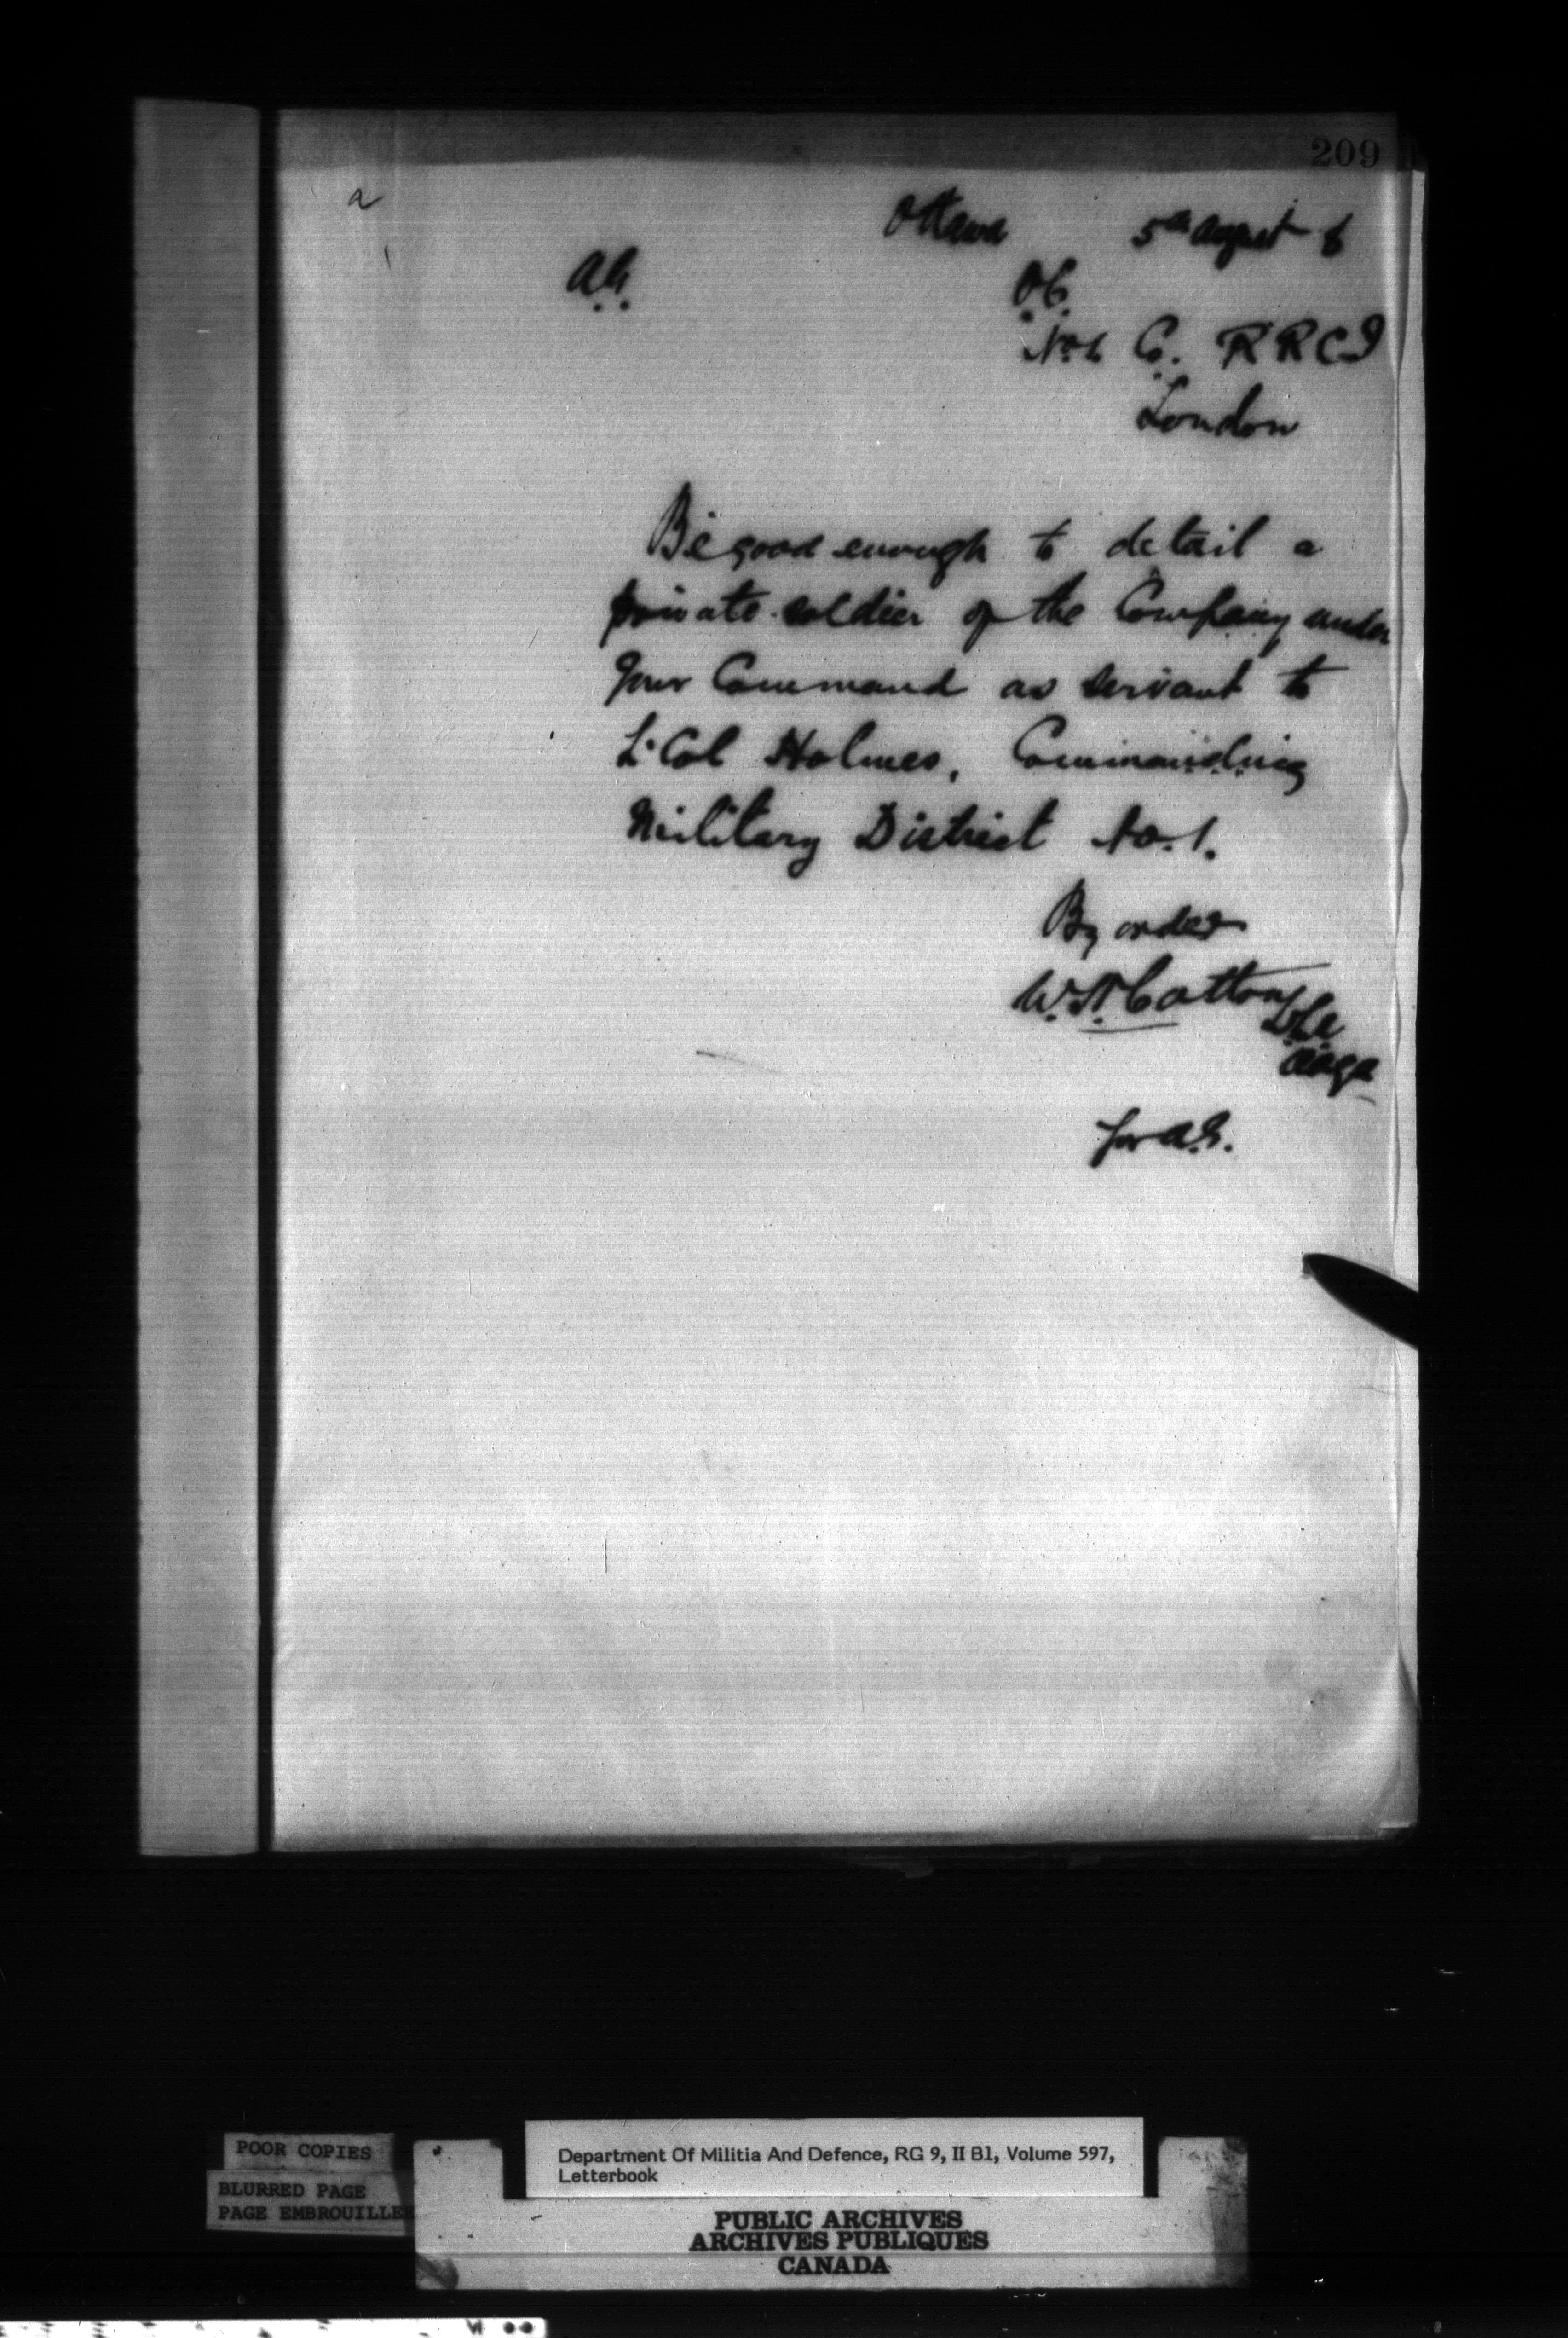 209
a
Ottawa 5th August 8
A.G. O.C.
No 1 Co. R R C I
London
Be good enough to detail a
private soldier of the Company under
your Command as servant to
Lt Col Holmes, Commanding
Military District No. 1.
By order
W. H. Cotton Lt Col
AAGA
for A.G.
POOR COPIES
BLURRED PAGE
PAGE EMBROUILLEE
Department Of Militia And Defence, RG 9, II B1, Volume 597,
Letterbook
PUBLIC ARCHIVES
ARCHIVES PUBLIQUES
CANADA